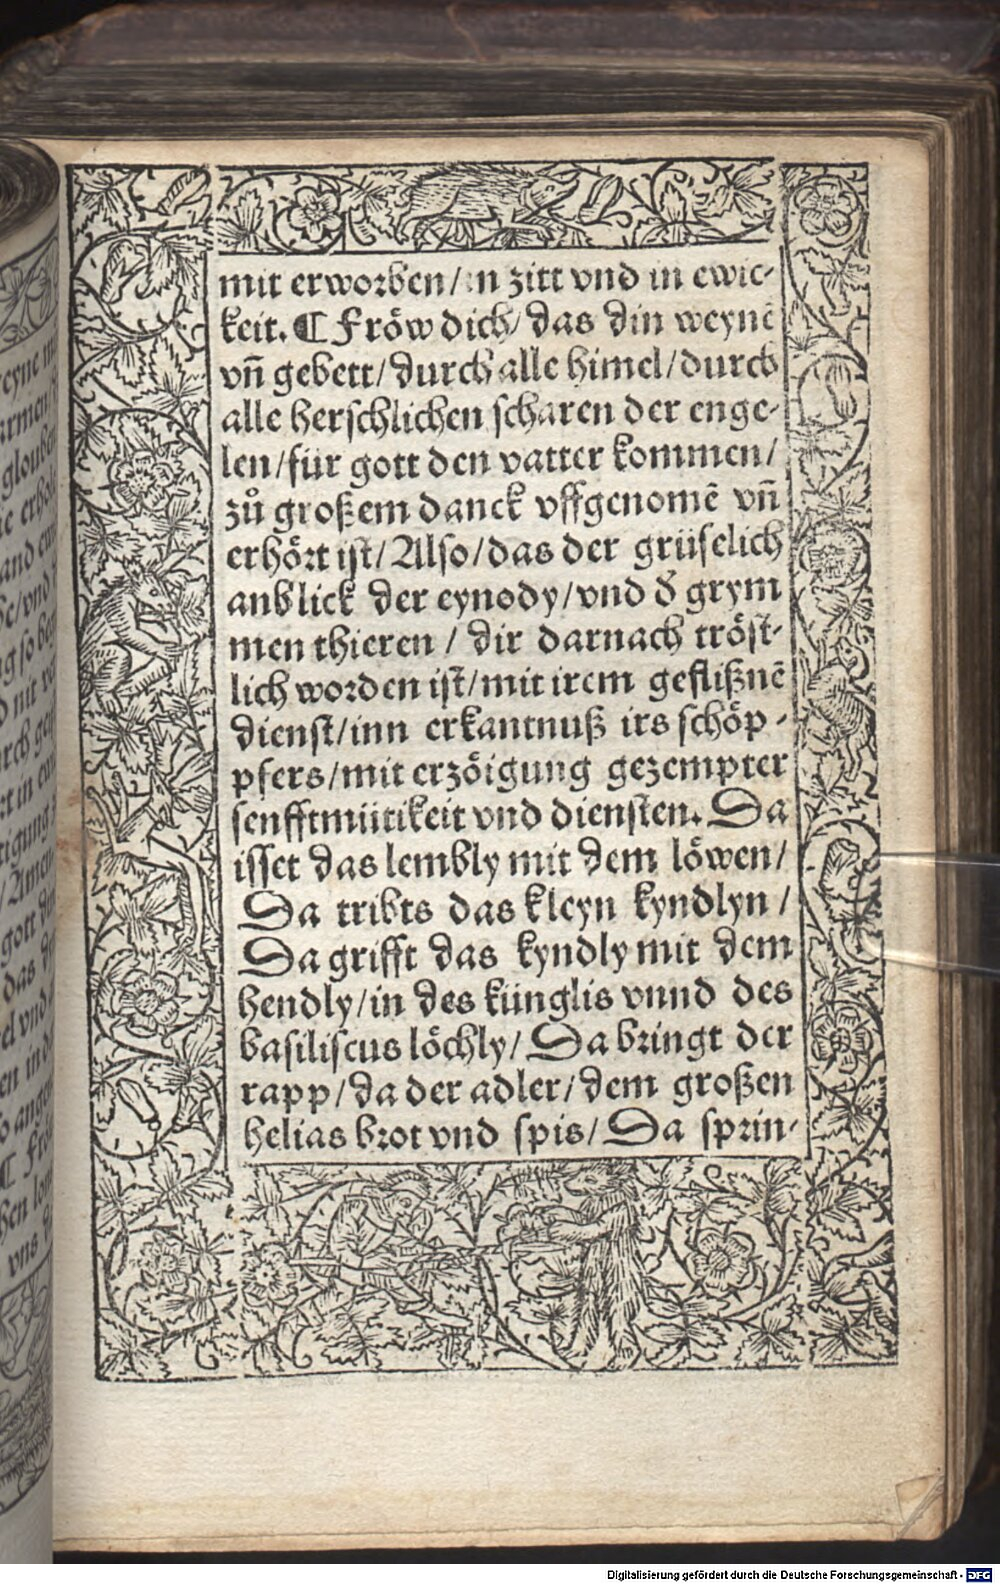 mit erworben/ in zitt vnd in ewic-
keit. ¶ Fröw dich/ das din weynē
vn̄ gebett/ durch alle himel/ durch
alle herschlichen scharen der enge-
len/ für gott den vatter kommen/
zů großem danck vffgenomē vn̄
erhört ist/ Also/ das der grüselich
anblick der eynody/ vnd d̕ grym
men thieren / dir darnach tröst-
lich worden ist/ mit irem geflißnē
dienst/ inn erkantnuß irs schöp-
pfers/ mit erzöigung gezempter
senfftmütikeit vnd diensten. Da
isset das lembly mit dem löwen/
Da tribts das kleyn kyndlyn /
Da grifft das kyndly mit dem
hendly/ in des künglis vnnd des
basiliscus löchly/ Da bringt der
rapp/ da der adler/ dem großen
helias brot vnd spis/ Da sprin-
Digitalisierung gefördert durch die Deutsche Forschungsgemeinschaft - DFG